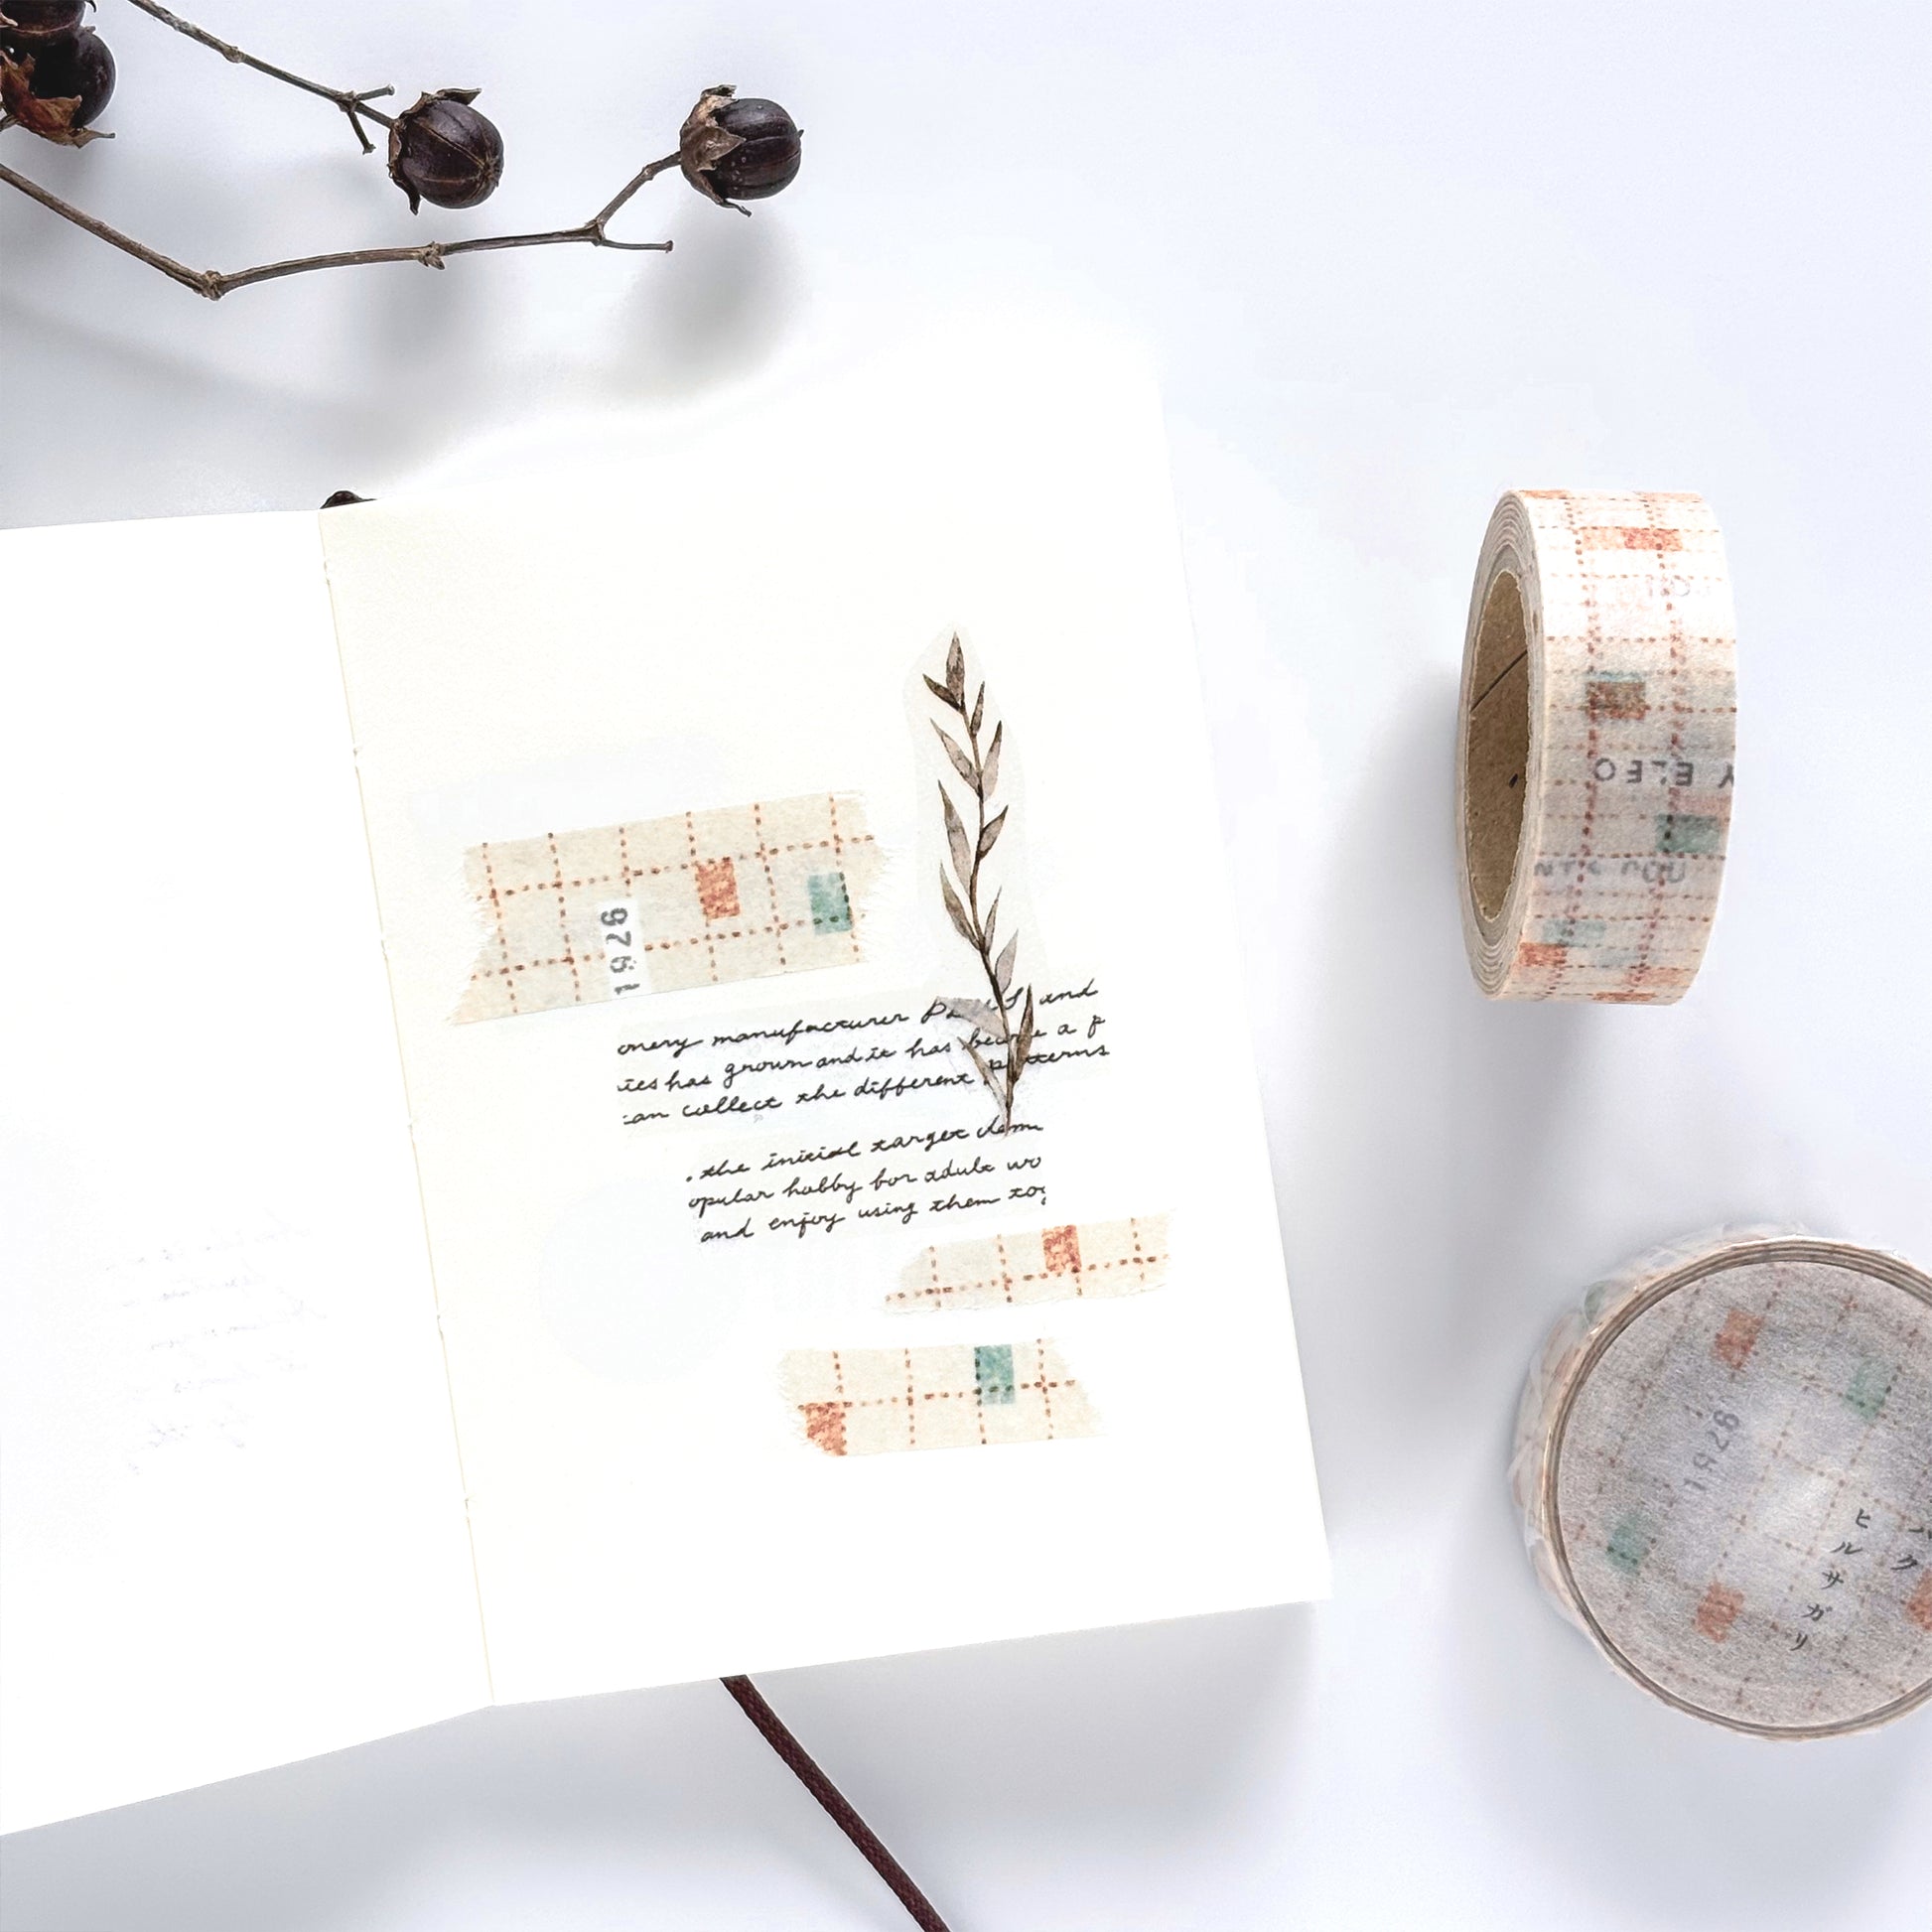 1976
onery manufacturer and
ies has grown and it has a p
can collect the different patterns
. the initial target dem
opular hobby for adult wo
and enjoy using them tog
Y ELEO
1976
ヒルサガリ